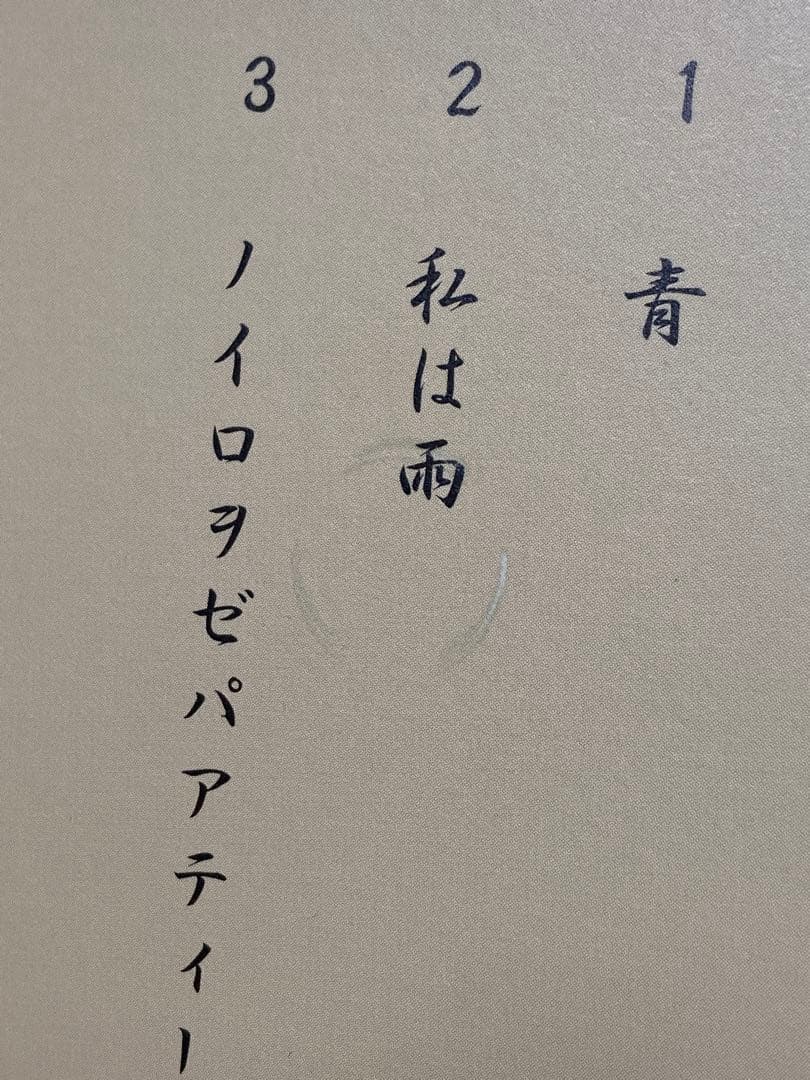 1 青
2 私は雨
3 ノイロヲゼパアティー